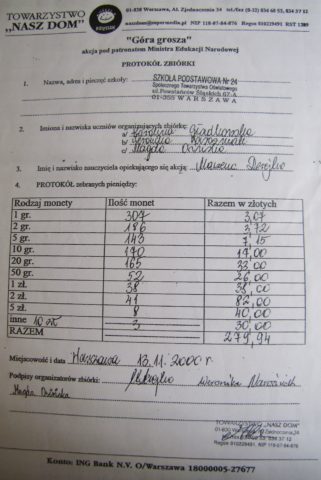 TOWARZYSTWO
„NASZ DOM”
01-838 Warszawa, Al. Zjednoczenia 34 tel/fax (0-22) 834 68 52, 834 37 12
naszdom@supermedia.pl NIP 118-07-84-876 Regon 010229491 RST 1289
"Góra grosza"
akcja pod patronatem Ministra Edukacji Narodowej
PROTOKÓŁ ZBIÓRKI
1. Nazwa, adres i pieczęć szkoły:
SZKOŁA PODSTAWOWA Nr 24
Społecznego Towarzystwa Oświatowego
ul. Powstańców Śląskich 67-A
01-355 WARSZAWA
2. Imiona i nazwiska uczniów organizujących zbiórkę:
a/ Karolina
b/ Weronika
c/ Magda
3. Imię i nazwisko nauczyciela opiekującego się akcją:
4. PROTOKÓŁ zebranych pieniędzy:
Rodzaj monety Ilość monet Razem w złotych
1 gr. 307 3,07
2 gr. 186 3,72
5 gr. 143 7,15
10 gr. 170 17,00
20 gr. 165 33,00
50 gr. 52 26,00
1 zł. 38 38,00
2 zł. 41 82,00
5 zł. 8 40,00
inne 10 zł 3 30,00
RAZEM 279,94
Miejscowość i data Warszawa 13.11.2000 r.
Podpisy organizatorów zbiórki: Weronika
Magda
TOWARZYSTWO „NASZ DOM”
Konto: ING Bank N.V. O/Warszawa 18000005-27677